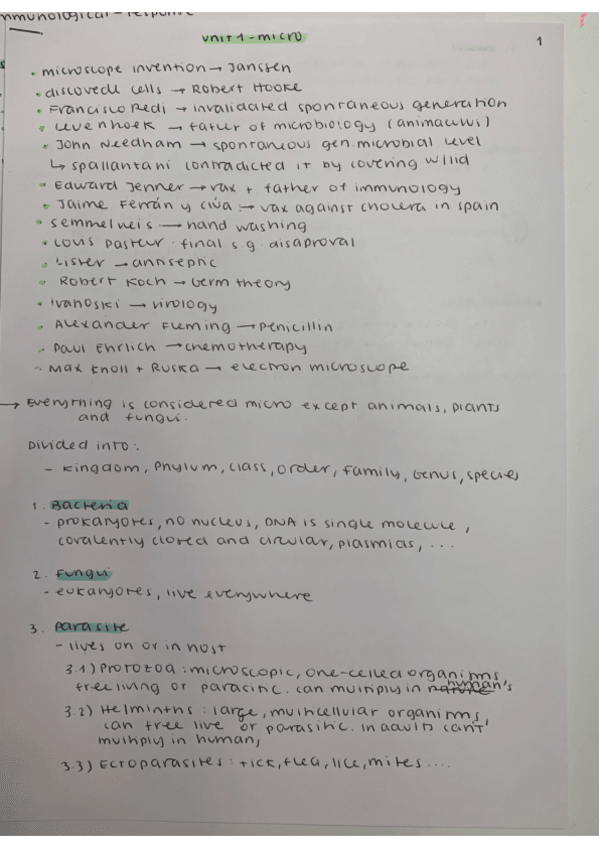 mmunological - response
Unit 1 - micro
1
• microscope invention → Janssen
• discovedc cells → Robert Hooke
• Francisco Redi → invalidated spontaneous generation
• Levenhoek → father of microbiology (animaculi)
• John Needham → spontaneous gen. microbial level
↳ spallantani contradicted it by covering w/lid
• Edward Jenner → vax + father of immunology
• Jaime Ferrán y clúa → vax against cholera in spain
• semmelneis → hand washing
• Louis Pasteur · final s.g. disaproval
• Lister → antiseptic
• Robert Koch → Germ theory
• Ivanoski → virology
• Alexander Fleming → Penicillin
• Paul Ehrlich → chemotherapy
• Max Knoll + Ruska → electron microscope
→ Everything is considered micro except animals, plants
and fungui.
Divided into:
- Kingdom, Phylum, Class, Order, Family, Genus, species
1. Bacteria
- prokaryotes, no nucleus, DNA is single molecule,
covalently closed and circular, plasmids, ...
2. Fungui
- eukaryotes, live everywhere
3. Parasite
- lives on or in host
3.1) Protozoa: microscopic, one-celled organisms,
free living or parasitic. can multiply in human's
3.2) Helminths: large, multicellular organisms,
can free live or parasitic. in adults can't
multiply in human,
3.3) Ectoparasites: tick, flea, lice, mites ....